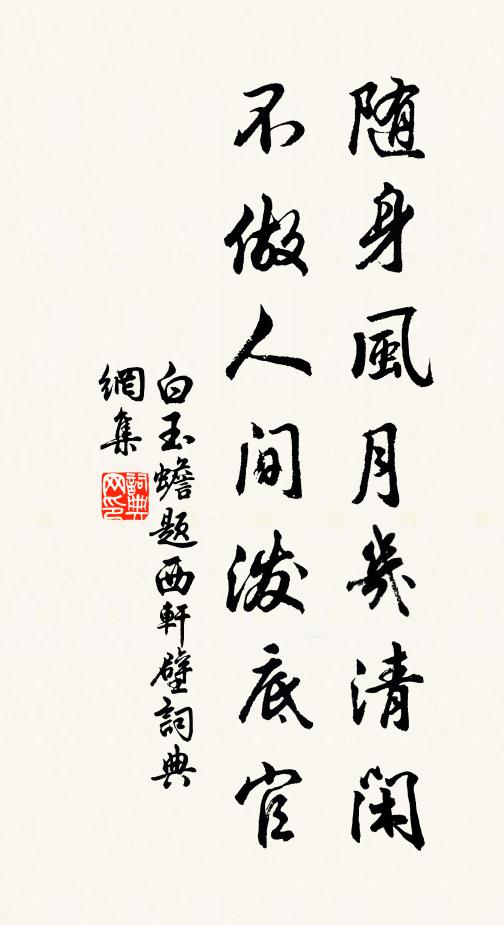 随身風月幾清閑
不做人间泼底官
白玉蟾题西軒壁詞典
網集
詞典
网印